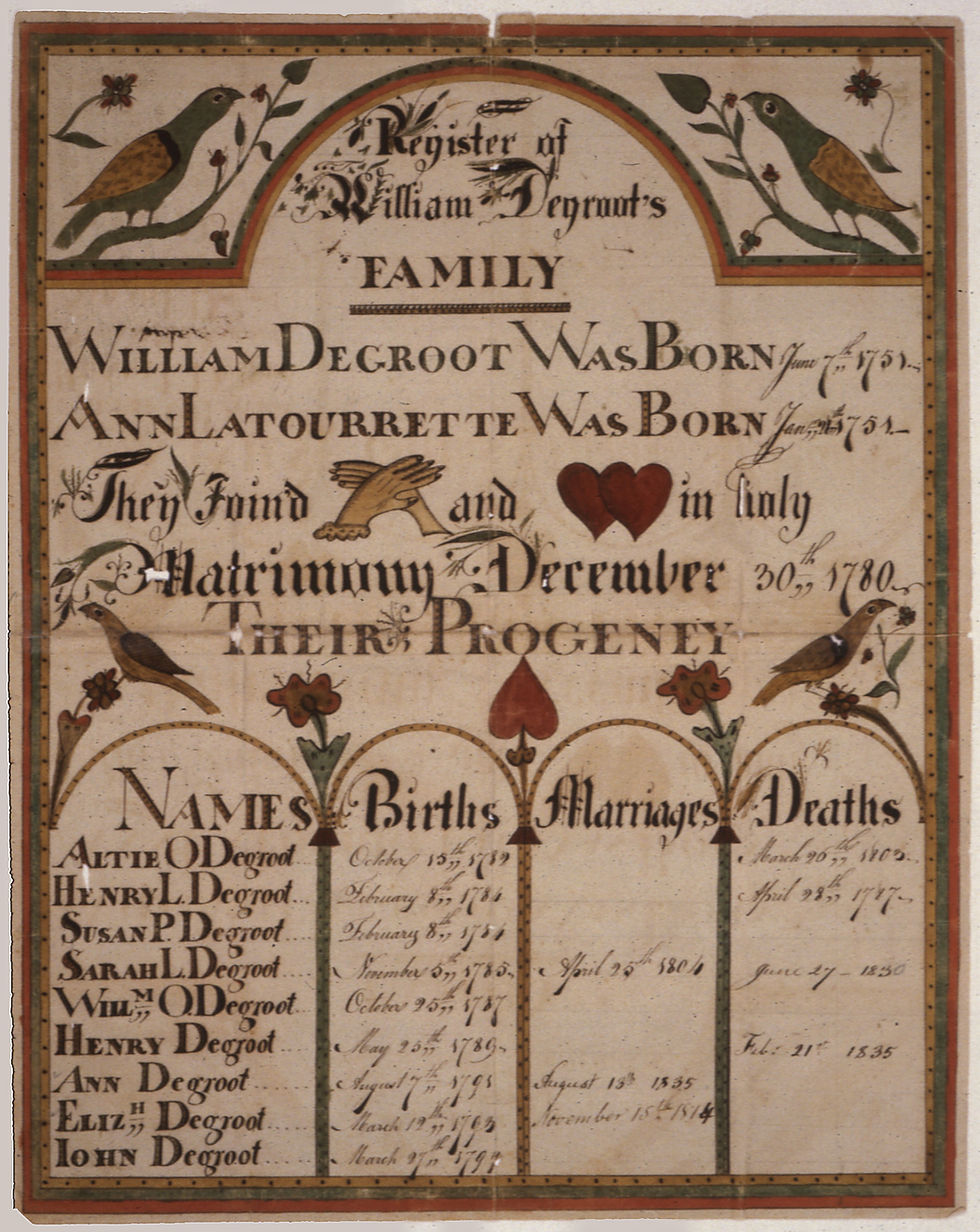 Register of
William Degroot's
FAMILY
WILLIAM DEGROOT WAS BORN June 7th 1751
ANN LATOURRETTE WAS BORN Jan 1751
They Join'd and in holy
Matrimony December 30th 1780
THEIR PROGENEY
NAMES Births Marriages Deaths
ALTIE O Degroot October 15th March 26th
HENRY L. Degroot February 8th 1784 April 28th 1787
SUSAN P. Degroot February 8th 1784
SARAH L Degroot November 5th 1785 April 25th 1804 June 27 - 1830
WILLM O. Degroot October 25th 1787
HENRY Degroot May 25th 1789 Feb: 21st 1835
ANN Degroot August 7th 1791 August 13th 1835
ELIZH Degroot March 12th 1793 November 15th 1814
IOHN Degroot March 27th 1794